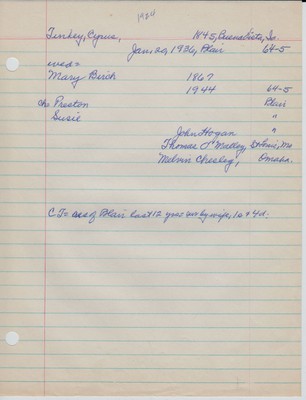 1924
Tinkey, Cyrus, N45, Buena Vista, Ia.
Jan. 20, 1936, Blair 64-5
wed=
Mary Birch 1867
1944 64-5
chs Preston Blair
Susie "
John Hogan "
Thomas O'Malley, St Louis, Mo
Melvin Chesley, Omaha.
CT= res of Blair last 12 yrs sur by wife, 1s + 4d.